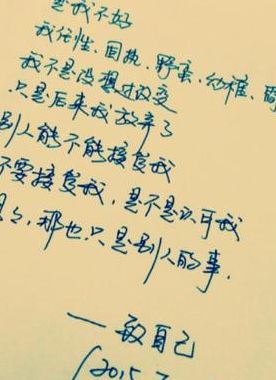 是我不好
我任性、固执、野蛮、幼稚、
我不是没想过改变
只是后来我放弃了
别人能不能接受我
不要接受我，是不是认可我
那也只是别人的事.
一致自己
(2015.7